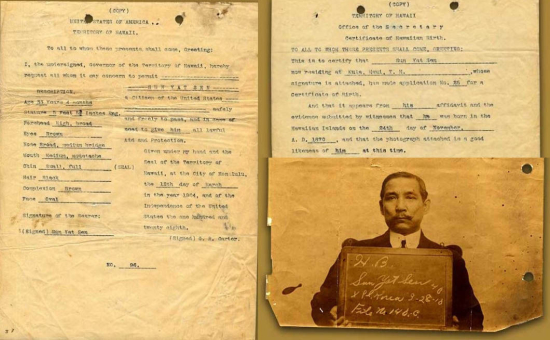 (COPY)
UNITED STATES OF AMERICA
TERRITORY OF HAWAII.
To all to whom these presents shall come, Greeting:
I, the undersigned, Governor of the Territory of Hawaii, hereby
request all whom it may concern to permit
SUN YAT SEN
DESCRIPTION.
a Citizen of the United States
safely
and freely to pass, and in case of
need to give him all lawful
aid and protection.
Given under my hand and the
Seal of the Territory of
Hawaii, at the City of Honolulu,
the 13th day of March
in the year 1904, and of the
Independence of the United
States the one hundred and
twenty eighth.
(Signed) G. R. Carter.
Age 33 Years 4 months
Stature 5 Feet Inches Eng.
Forehead high, broad
Eyes Brown
Nose Broad, medium bridge
Mouth Medium, moustache
Chin Small, Full
(SEAL)
Hair Black
Complexion Brown
Face Oval
Signature of the Bearer:
(Signed) Sun Yat Sen
NO.
(COPY)
TERRITORY OF HAWAII
Office of the Secretary
Certificate of Hawaiian Birth.
TO ALL TO WHOM THESE PRESENTS SHALL COME, GREETING:
This is to certify that Sun Yat Sen
now residing at Kula, Maui, T. H. whose
signature is attached, has made application No. for a
Certificate of Birth.
And that it appears from his affidavit and the
evidence submitted by witnesses that he was born in the
Hawaiian Islands on the 24th day of November,
A. D. 1870, and that the photograph attached is a good
likeness of him at this time.
H. B.
Sun Yat Sen
S.S. Korea
File No